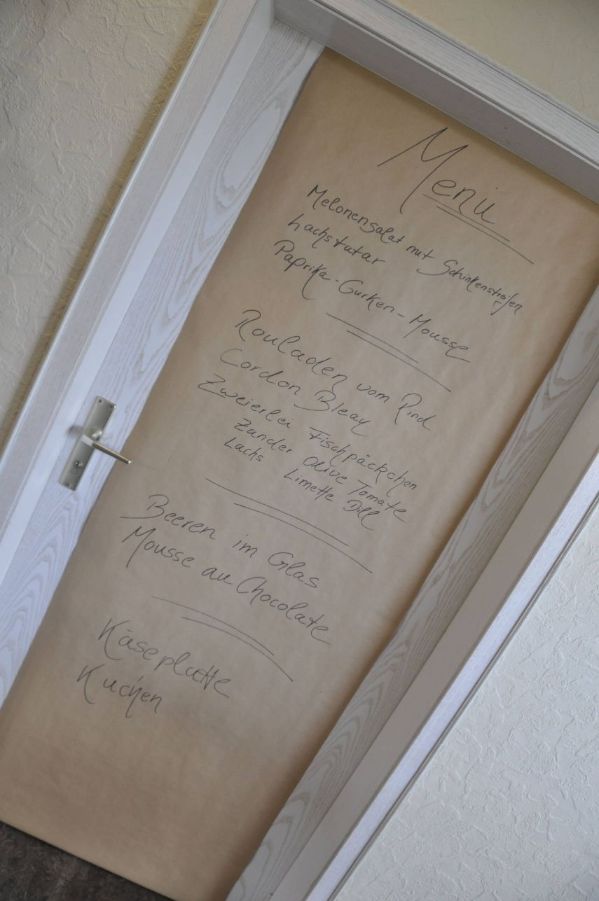 Menü
Melonensalat mit Schinkenstreifen
Lachstatar
Paprika-Gurken-Mousse
Rouladen vom Rind
Cordon Bleau
Zweierlei Fischpäckchen
Zander Olive Tomate
Lachs Limette Dill
Beeren im Glas
Mousse au Chocolate
Käseplatte
Kuchen